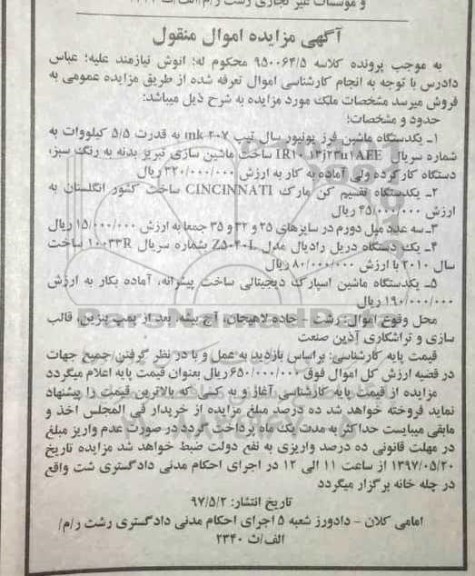 و موسسات غیر تجاری رشت ر/م/الف/ت
آگهی مزایده اموال منقول
به موجب پرونده کلاسه ۹۵۰۰۶۴/۵ محکوم له؛ انوش نیازمند علیه؛ عباس
دادرس با توجه به انجام کارشناسی اموال تعرفه شده از طریق مزایده عمومی به
فروش میرسد مشخصات ملک مورد مزایده به شرح ذیل میباشد:
حدود و مشخصات؛
۱ـ یکدستگاه ماشین فرز یونیور سال تیپ mk ۲۰۷ به قدرت ۵/۵ کیلووات به
شماره سریال ساخت ماشین سازی تبریز بدنه به رنگ سبز،
دستگاه کارکرده ولی آماده به کار به ارزش ۳۲۰/۰۰۰/۰۰۰ ریال
۲ـ یکدستگاه تقسیم کن مارک CINCINNATI ساخت کشور انگلستان به
ارزش ۴۵/۰۰۰/۰۰۰ ریال
۳ـ سه عدد میل دورم در سایزهای ۲۵ و ۳۲ و ۳۵ جمعا به ارزش ۱۵/۰۰۰/۰۰۰ ریال
۴ـ یک دستگاه دریل رادیال مدل Z۵۰۴۰L بشماره سریال ۱۰۰۳۳R ساخت
سال ۲۰۱۰ با ارزش ۸۰/۰۰۰/۰۰۰ ریال
۵ـ یکدستگاه ماشین اسپارک دیجیتالی ساخت پیشرانه، آماده بکار به ارزش
۱۹۰/۰۰۰/۰۰۰ ریال
محل وقوع اموال: رشت - جاده لاهیجان، آج بیشه، بعد از پمپ بنزین، قالب
سازی و تراشکاری آذین صنعت
قیمت پایه کارشناسی: براساس بازدید به عمل و با در نظر گرفتن جمیع جهات
در قضیه ارزش کل اموال فوق ۶۵۰/۰۰۰/۰۰۰ریال بعنوان قیمت پایه اعلام میگردد
مزایده از قیمت پایه کارشناسی آغاز و به کسی که بالاترین قیمت را پیشنهاد
نماید فروخته خواهد شد ده درصد مبلغ مزایده از خریدار فی المجلس اخذ و
مابقی میبایست حداکثر به مدت یک ماه پرداخت گردد در صورت عدم واریز مبلغ
در مهلت قانونی ده درصد واریزی به نفع دولت ضبط خواهد شد مزایده تاریخ
۱۳۹۷/۰۵/۲۰ از ساعت ۱۱ الی ۱۲ در اجرای احکام مدنی دادگستری شت واقع
در چله خانه برگزار میگردد
تاریخ انتشار: ۹۷/۵/۲
امامی کلان - دادورز شعبه ۵ اجرای احکام مدنی دادگستری رشت ر/م/
الف/ث ۲۳۴۰